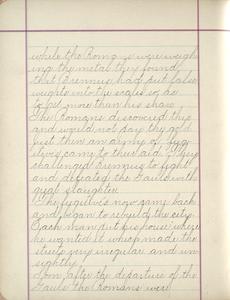 while the Romans were weigh
ing the metal they found
that Brennus had put false
weights into the scales so as
to get more than his share
The Romans discovered this
and would not pay the gold
Just then an army of fug
itives came to their aid They
challenged Brennus to fight
and defeated the Gauls with
great slaughter
The fugitives now came back
and began to rebuild the city.
Each man put his house where
he wanted it which made the
streets very irregular and un
sightly
Soon after the departure of the
Gauls the Romans were